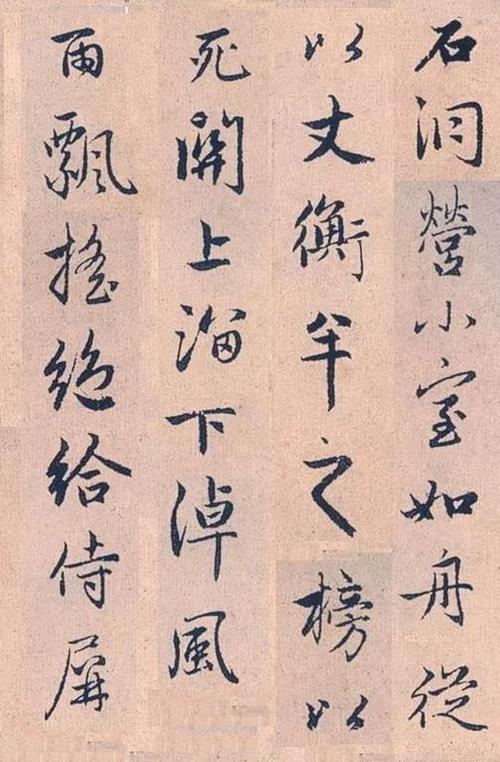 石洞營小室如舟從
以丈衡半之榜以
死關上溜下淖風
雨飄搖絶給侍屏